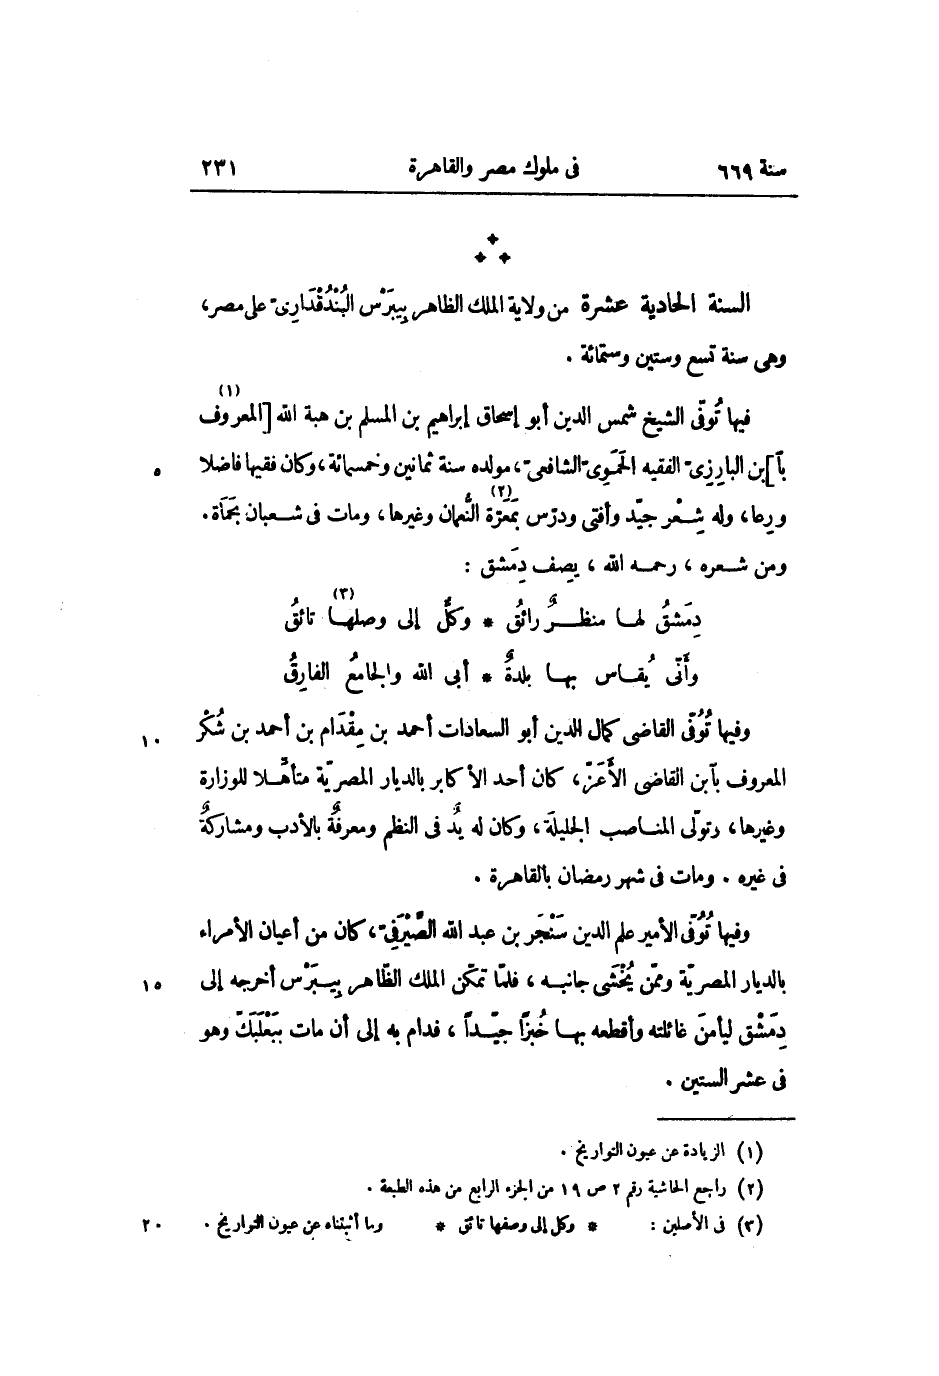 سنة ٦٦٩ فى ملوك مصر والقاهرة ٢٣١
السنة الحادية عشرة من ولاية الملك الظاهر بِيبَرْس البُنْدُقْدَارِىّ على مصر،
وهى سنة تسع وستين وستمائة .
فيها تُوفّى الشيخ شمس الدين أبو إسحاق إبراهيم بن المسلم بن هبة الله [المعروف (١)
بآ]بن البارِزِىّ الفقيه الحَمَوِىّ الشافعىّ، مولده سنة ثمانين وخمسمائة، وكان فقيها فاضلا ٥
ورِعا، وله شِعْر جيّد وأفتى ودرّس بمَعَرّة (٢) النُّعمان وغيرها، ومات فى شعبان بحَمَاة.
ومن شعره ، رحمه الله ، يصِف دِمَشق :
دِمَشقُ لها منظرٌ رائقُ * وكلٌّ إلى وصلها (٣) تائقُ
وأَنّى يُقاس بها بلدةٌ * أبى الله والجامعُ الفارِقُ
وفيها تُوُفّى القاضى كمال الدين أبو السعادات أحمد بن مِقْدَام بن أحمد بن شُكْر ١٠
المعروف بآبن القاضى الأَعَزّ، كان أحد الأكابر بالديار المصريّة متأهّلا للوزارة
وغيرها، وتولّى المناصب الجليلة، وكان له يدٌ فى النظم ومعرفةٌ بالأدب ومشاركةٌ
فى غيره . ومات فى شهر رمضان بالقاهرة .
وفيها تُوُفّى الأمير علم الدين سَنْجَر بن عبد الله الصَّيْرَفِىّ، كان من أعيان الأمراء
بالديار المصريّة وممّن يُخْشَى جانبه ، فلمّا تمكّن الملك الظّاهر بِيبَرْس أخرجه إلى ١٥
دِمَشْق ليأمنَ غائلته وأقطعه بها خُبزًا جيّدًا ، فدام به إلى أن مات ببَعْلَبَكّ وهو
فى عشر الستين .
(١) الزيادة عن عيون التواريخ .
(٢) راجع الحاشية رقم ٢ ص ١٩ من الجزء الرابع من هذه الطبعة .
(٣) فى الأصلين : * وكل إلى وصفها تائق * وما أثبتناه عن عيون التواريخ . ٢٠